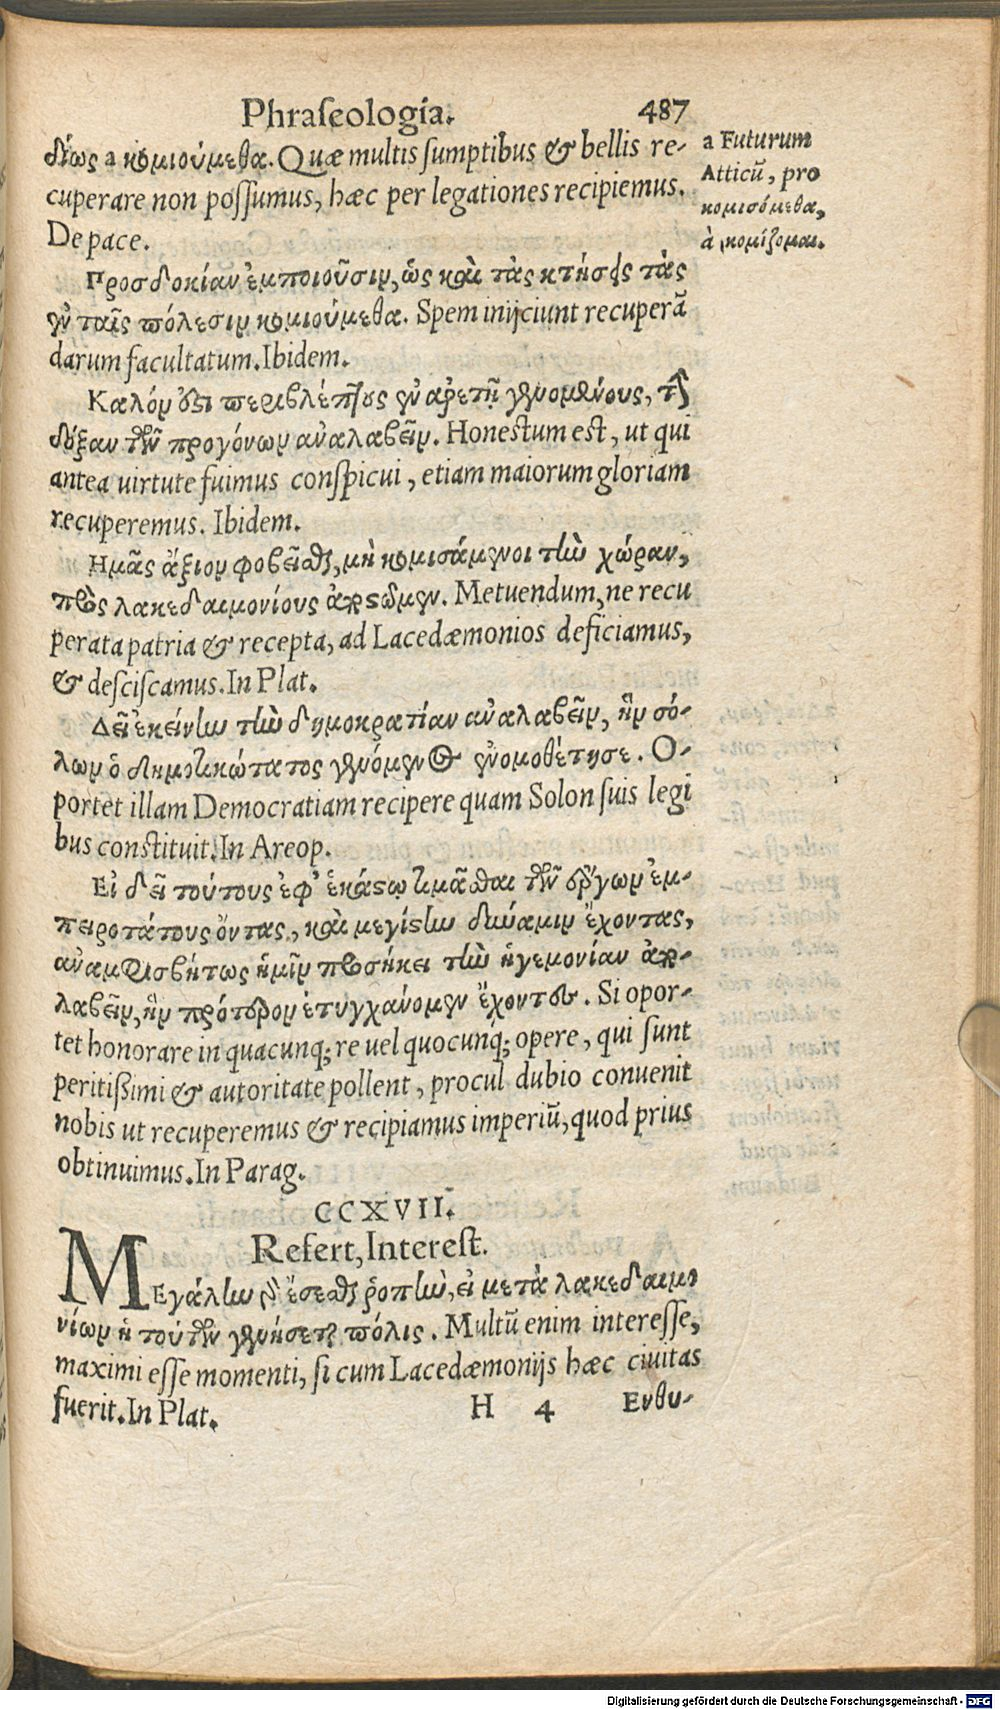 Phraseologia. 487
δίως a κομιούμεθα. Quæ multis sumptibus & bellis re-
cuperare non possumus, hæc per legationes recipiemus.
De pace.
Προσδοκίαν ἐμποιοῦσιν, ὡς καὶ τὰς κτήσεις τὰς
ἐν ταῖς πόλεσιν κομιούμεθα. Spem inijciunt recuperã
darum facultatum. Ibidem.
Καλόν ὅτι περιβλέπτους ἐν ἀρετῇ γενομένους, τὴν
δόξαν τῶν προγόνων ἀναλαβεῖν. Honestum est, ut qui
antea virtute fuimus conspicui, etiam maiorum gloriam
recuperemus. Ibidem.
Ημᾶς ἄξιον φοβεῖσθαι, μὴ κομισάμενοι τὴν χώραν,
πρὸς λακεδαιμονίους ἀποστῶμεν. Metuendum, ne recu
perata patria & recepta, ad Lacedæmonios deficiamus,
& desciscamus. In Plat.
Δεῖ ἐκείνην τὴν δημοκρατίαν ἀναλαβεῖν, ἣν σό-
λων ὁ δημοτικώτατος γενόμενος ἐνομοθέτησε. O-
portet illam Democratiam recipere quam Solon suis legi
bus constituit. In Areop.
Εἰ δεῖ τούτους ἐφ' ἑκάστῳ τιμᾶσθαι τῶν ἔργων ἐμ-
πειροτάτους ὄντας, καὶ μεγίστην δύναμιν ἔχοντας,
ἀναμφισβήτως ἡμῖν προσήκει τὴν ἡγεμονίαν ἀπο-
λαβεῖν, ἣν πρότερον ἐτυγχάνομεν ἔχοντες. Si opor-
tet honorare in quacunq; re vel quocunq; opere, qui sunt
peritißimi & autoritate pollent, procul dubio convenit
nobis ut recuperemus & recipiamus imperiũ, quod prius
obtinuimus. In Parag.
CCXVII.
Refert, Interest.
ΜΕγάλην δ' ἔσεσθαι ῥοπὴν, εἰ μετὰ λακεδαιμο
νίων ἡ τούτων γενήσεται πόλις. Multũ enim interesse,
maximi esse momenti, si cum Lacedæmonijs hæc civitas
fuerit. In Plat. H 4 Ενθυ-
a Futurum
Atticũ, pro
κομισόμεθα,
à κομίζομαι.
Digitalisierung gefördert durch die Deutsche Forschungsgemeinschaft - DFG